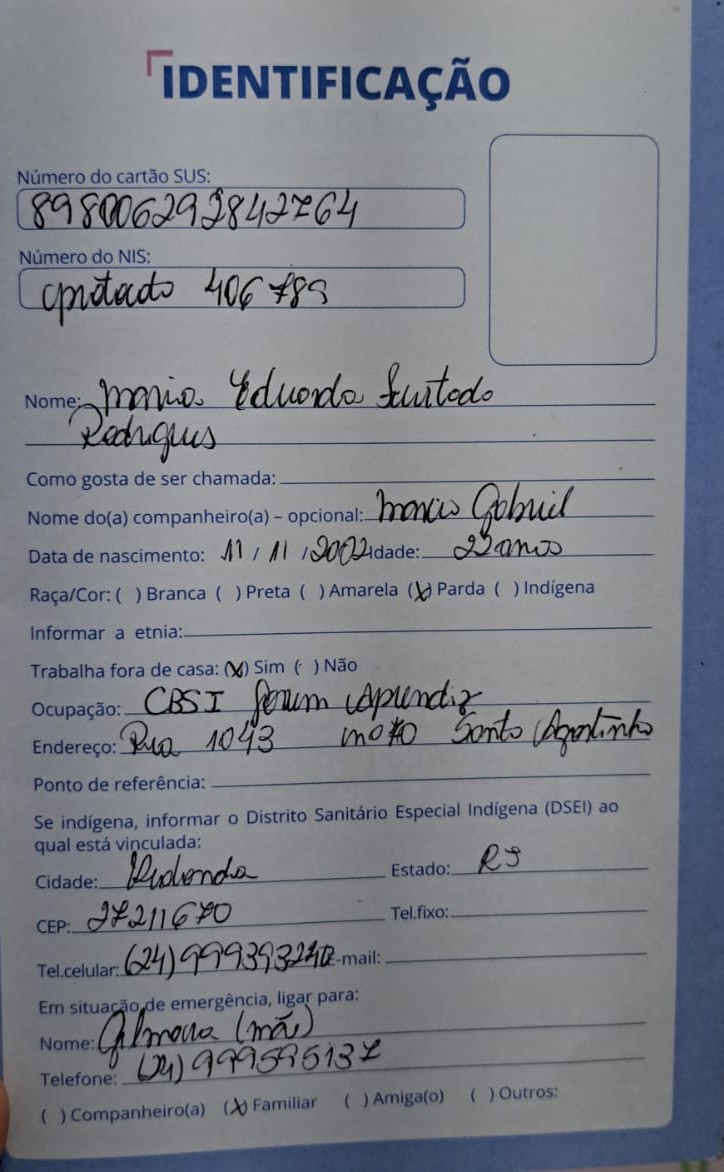 IDENTIFICAÇÃO
Número do cartão SUS:
898006292842764
Número do NIS:
406789
Nome: Maria Eduarda Furtado
Rodrigues
Como gosta de ser chamada:
Nome do(a) companheiro(a) – opcional: Gabriel
Data de nascimento: 11 / 11 / 2002 Idade: 22 anos
Raça/Cor: ( ) Branca ( ) Preta ( ) Amarela (X) Parda ( ) Indígena
Informar a etnia:
Trabalha fora de casa: (X) Sim ( ) Não
Ocupação: CBSI Jovem Aprendiz
Endereço: Rua 1043 nº 70 Santo Agostinho
Ponto de referência:
Se indígena, informar o Distrito Sanitário Especial Indígena (DSEI) ao
qual está vinculada:
Cidade: Redonda Estado: RJ
CEP: 27211670 Tel.fixo:
Tel.celular: (24) -mail:
Em situação de emergência, ligar para:
Nome: (mãe)
Telefone: (24) 999595137
( ) Companheiro(a) (X) Familiar ( ) Amiga(o) ( ) Outros: